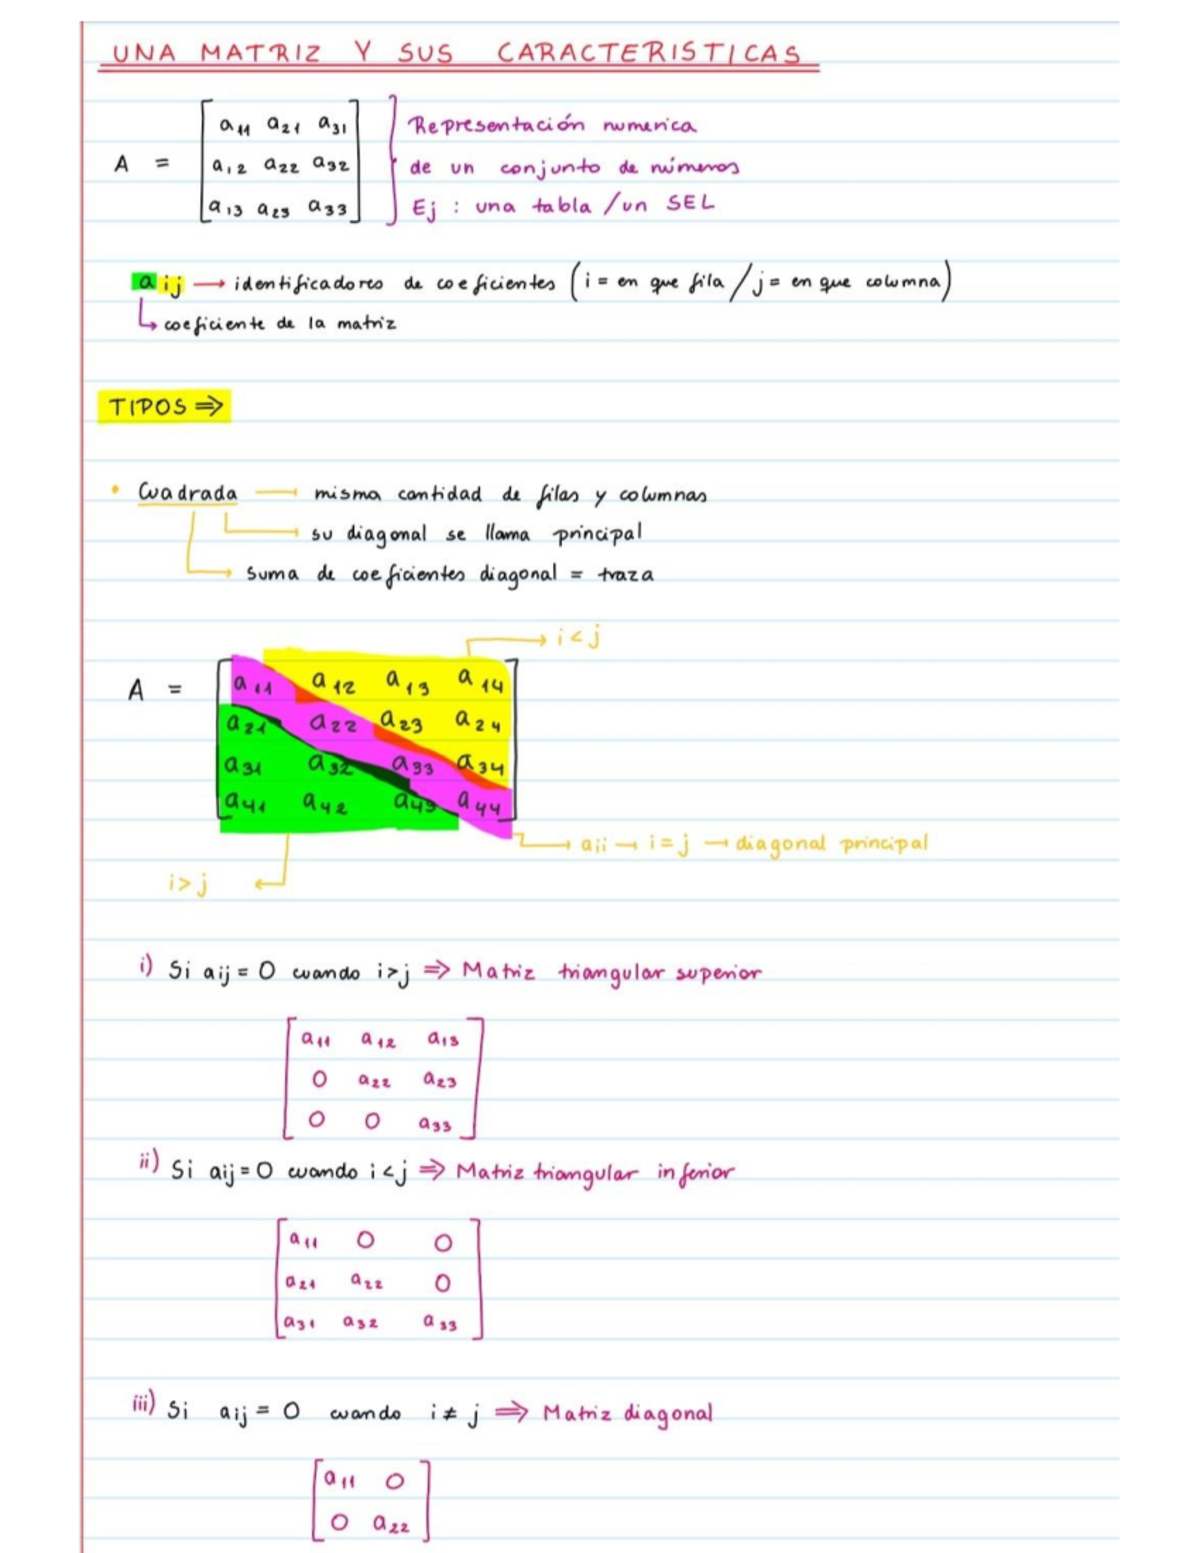 UNA MATRIZ Y SUS CARACTERISTICAS
a11 a21 a31 Representación numerica
A = a12 a22 a32 de un conjunto de números
a13 a23 a33 Ej : una tabla / un SEL
aij → identificadores de coeficientes (i = en que fila / j = en que columna)
↳ coeficiente de la matriz
TIPOS ⇒
• Cuadrada — misma cantidad de filas y columnas
→ su diagonal se llama principal
→ suma de coeficientes diagonal = traza
→ i < j
A = a11 a12 a13 a14
a21 a22 a23 a24
a31 a32 a33 a34
a41 a42 a43 a44
→ aii → i = j → diagonal principal
i > j ←
i) Si aij = 0 cuando i > j ⇒ Matriz triangular superior
a11 a12 a13
0 a22 a23
0 0 a33
ii) Si aij = 0 cuando i < j ⇒ Matriz triangular inferior
a11 0 0
a21 a22 0
a31 a32 a33
iii) Si aij = 0 cuando i ≠ j ⇒ Matriz diagonal
a11 0
0 a22